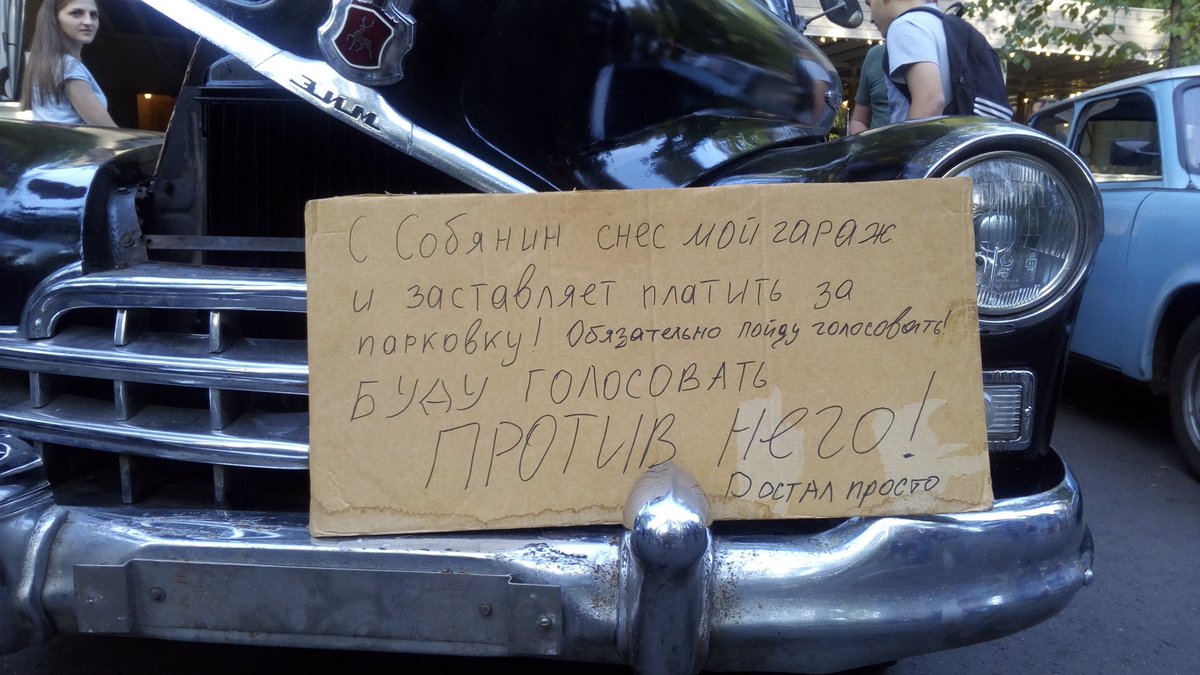 ЗИМ
С. Собянин снес мой гараж
и заставляет платить за
парковку! Обязательно пойду голосовать!
БУДУ ГОЛОСОВАТЬ
ПРОТИВ Него!
Достал просто